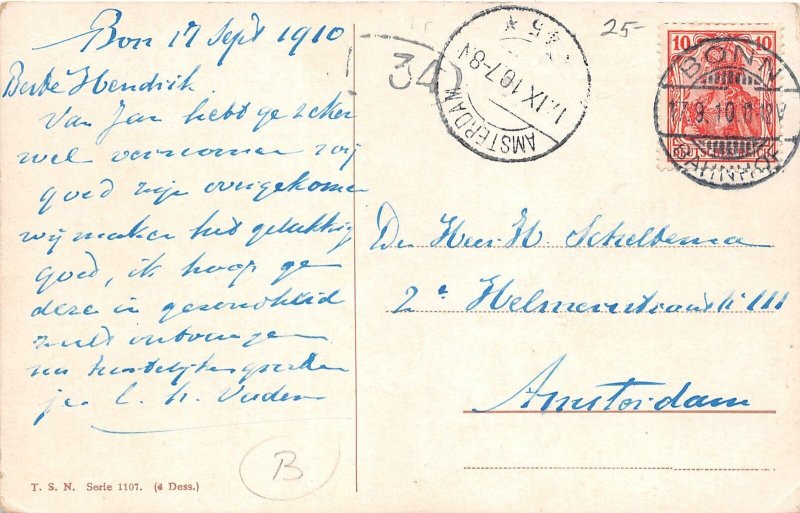 Bon 17 Sept 1910
Beste Hendrik
Van Jan hebt ge zeker
wel vernomen wij
goed zijn overgekomen
wij maken het gelukkig
goed, ik hoop ge
deze in gezondheid
zult ontvangen
nu hartelijk gegroeten
je
T. S. N. Serie 1107. (6 Dess.)
B
34
AMSTERDAM
IX 10 7-8V
25-
10 10
DEUTSCHES REICH
BONN
17.9.10
BAHNHOF
Den Heer H. Scheltema
2e Helmersstraat III
Amsterdam